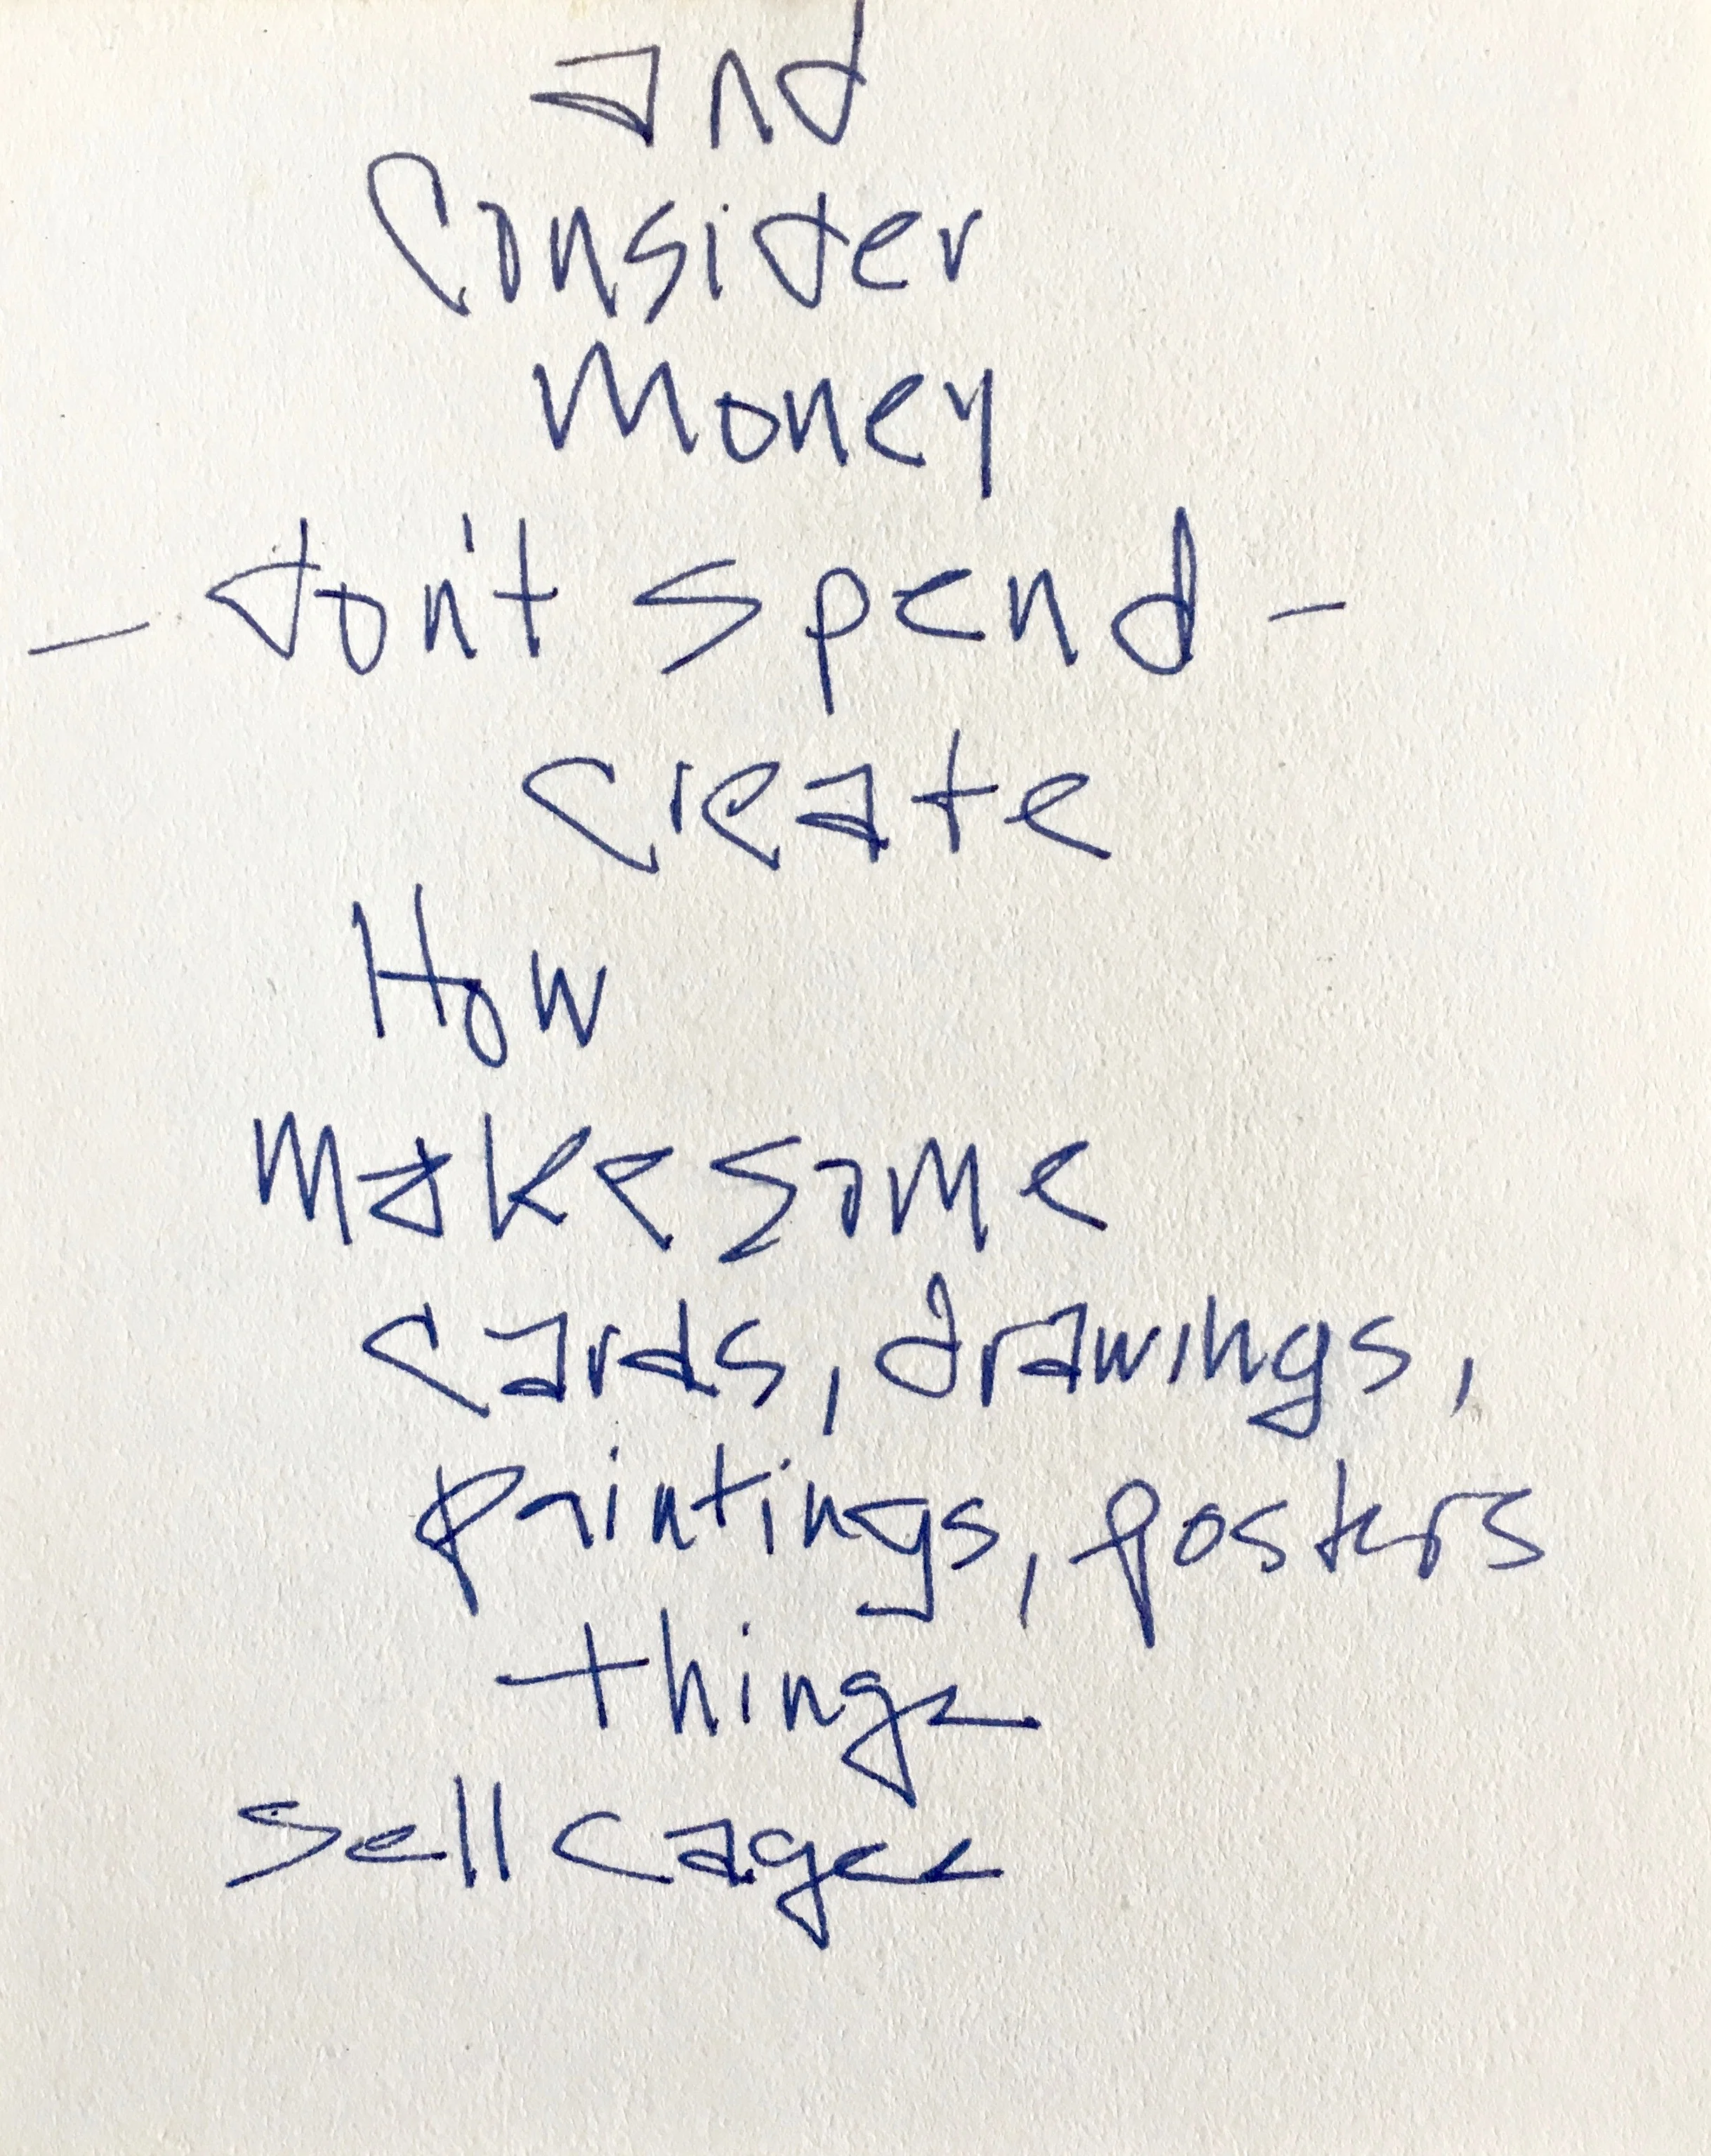 and
Consider
Money
— don't spend —
create
How
Make some
cards, drawings,
paintings, posters
things
sell cages